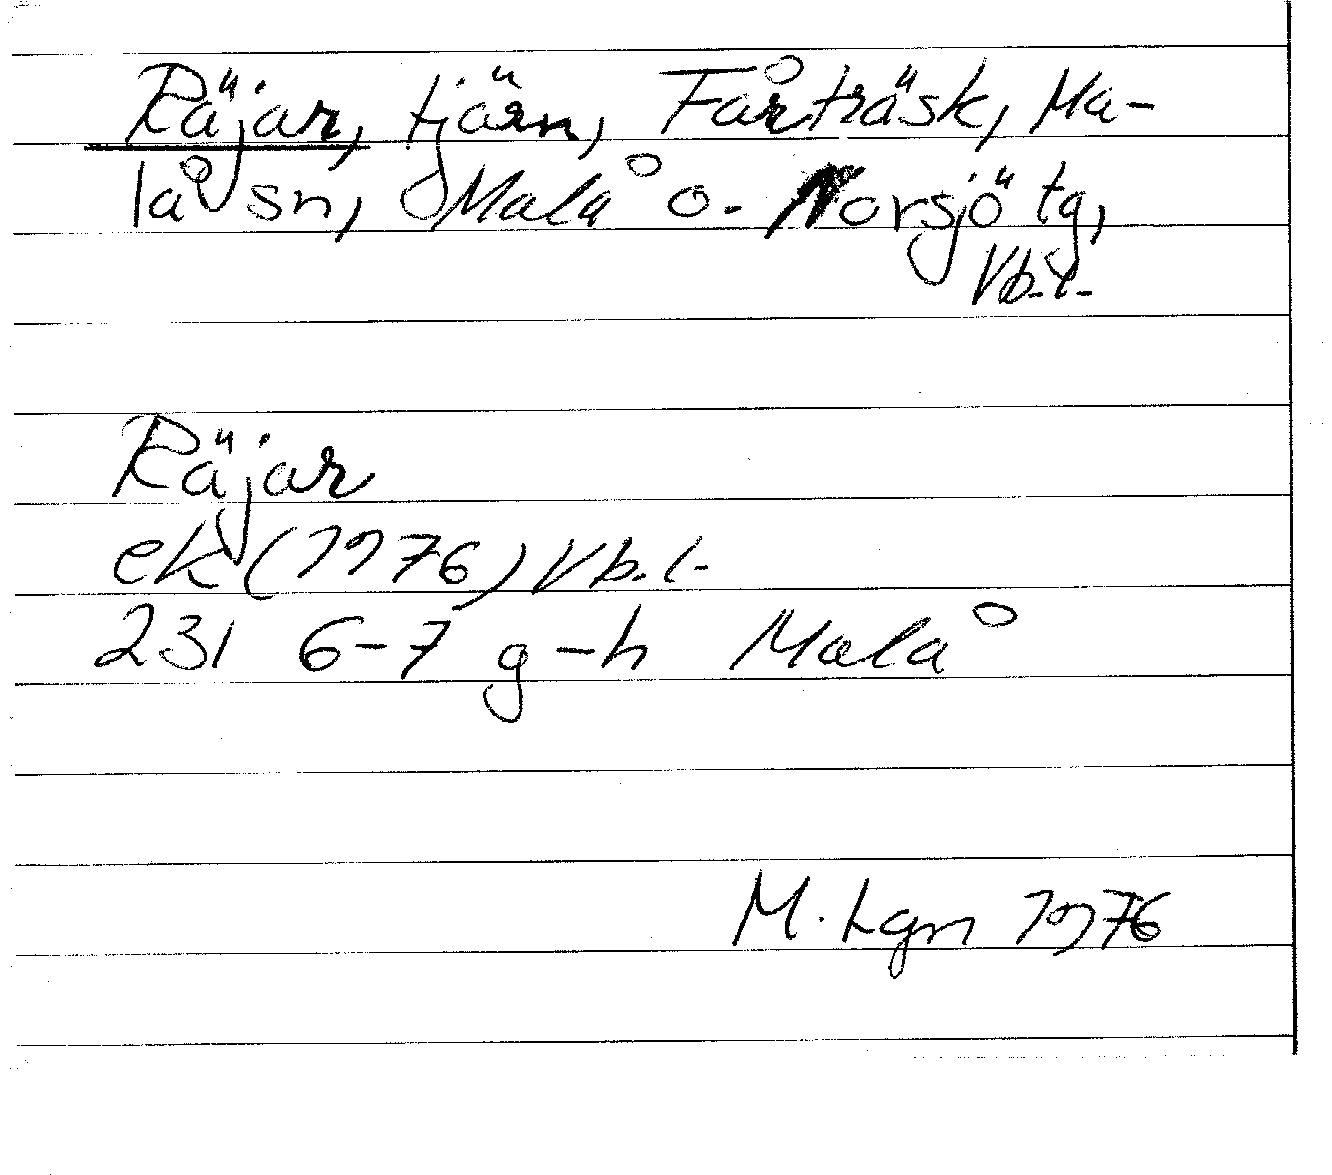 Räjar, tjärn, Fårträsk, Ma-
lå sn, Malå o. Norsjö tg,
Vb.l.
Räjar
ek (1976) Vb.l.
231 6-7 g-h Malå
M. Lgn 1976